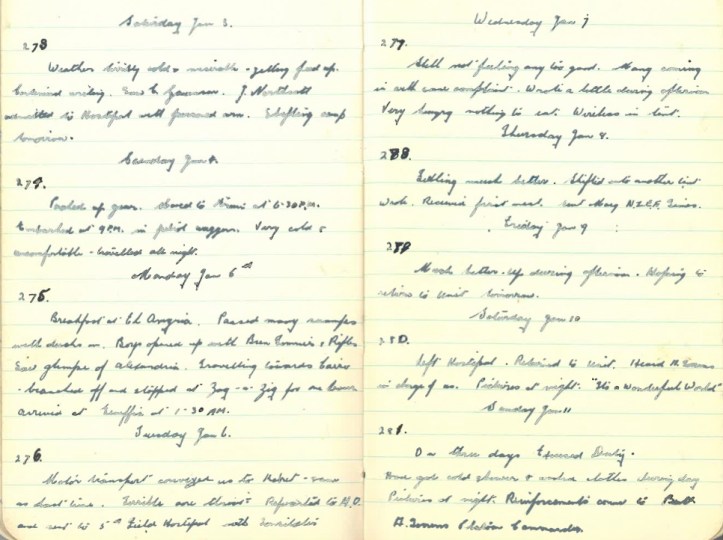 Saturday Jan 3.
273
Weather bitterly cold & miserable - getting fed up.
writing. Saw G. J. Northcott
admitted to Hostipal with poisoned arm. Shifting camp
tomorrow.
Sunday Jan 4.
274.
Packed up gear. moved to at 6-30 P.M.
Embarked at 9 P.M. in waggon. Very cold &
uncomfortable - travelled all night.
Monday Jan 6th
275.
Breakfast at El Passed many
with on. Boys opened up with Bren & Rifles
Saw glimpse of Alexandria. Travelling towards Cairo
- branched off and stopped at Zag-a-Zig for an hour
arrived at Geneffia at 1-30 AM.
Tuesday Jan 6.
276.
Motor transport conveyed us to - same
as last time. Terrible sore throat. Reported to M.O.
and sent to 5th Field Hostipal with Tonsilitis
Wednesday Jan 7
277.
Still not feeling any too good. Many coming
in with same complaint. Wrote a little during afternoon
Very hungry nothing to eat. Wireless in tent.
Thursday Jan 8.
288
Feeling much better. Shifted into another tent
Received first meal. sent Mary N.Z.E.F. Times.
Friday Jan 9
289
Much better. Up during afternoon. Hoping to
return to Unit tomorrow.
Saturday Jan 10
280.
Left Hostipal. Returned to Unit. Heard
in charge of us. Pictures at night. "Its a Wonderful World"
Sunday Jan 11
281.
On three days Excused Duty.
Have got cold shower & clothes during day
Pictures at night. Reinforcements came to Batt.
Platoon Commander.